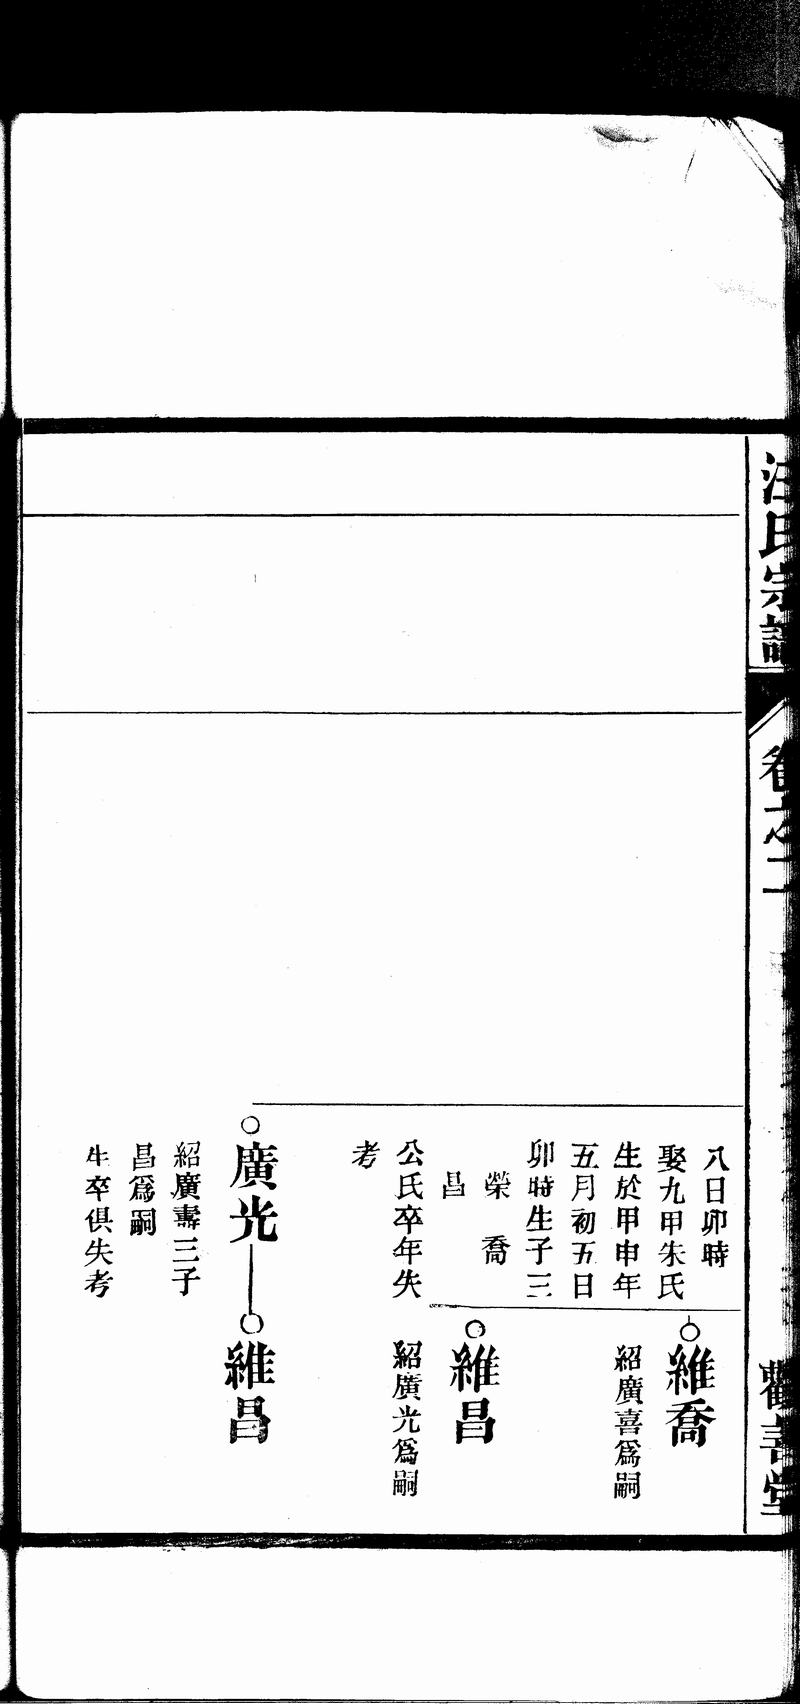 汪氏宗譜
卷之二
勸善堂
八日卯時
娶九甲朱氏
生於甲申年
五月初五日
卯時生子三
榮 喬
昌
公氏卒年失
考
維喬
紹廣喜爲嗣
維昌
紹廣光爲嗣
廣光
紹廣壽三子
昌爲嗣
生卒俱失考
維昌